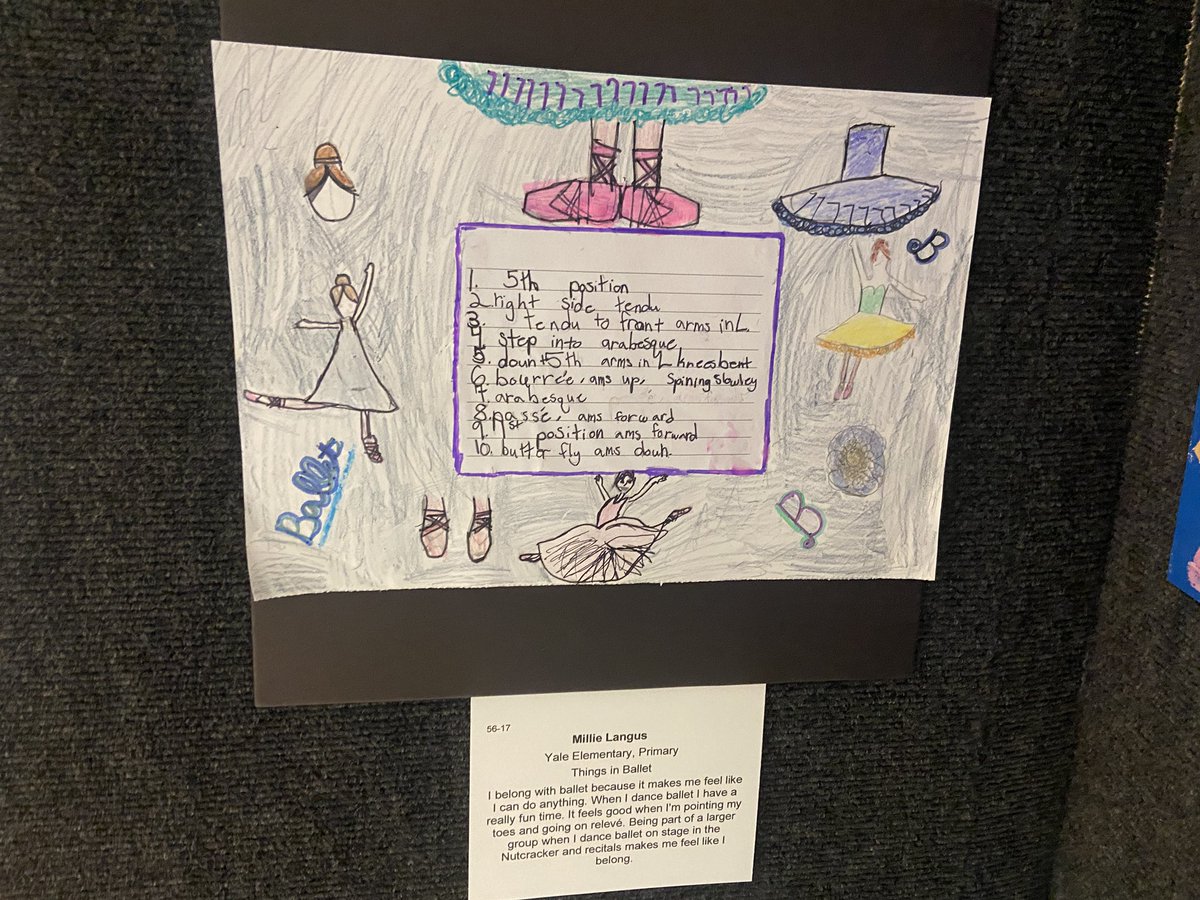 1. 5th position
2. right side tendu
3. tendu to front arms in L.
4. Step into arabesque
5. doun 5th arms in L knees bent
6. bourrée, ams up, Spining Slowley
7. arabesque
8. passé, ams forward
9. 1st position ams forward
10. butter fly ams doun.
B
Ballet
B
56-17
Millie Langus
Yale Elementary, Primary
Things in Ballet
I belong with ballet because it makes me feel like
I can do anything. When I dance ballet I have a
really fun time. It feels good when I'm pointing my
toes and going on relevé. Being part of a larger
group when I dance ballet on stage in the
Nutcracker and recitals makes me feel like I
belong.